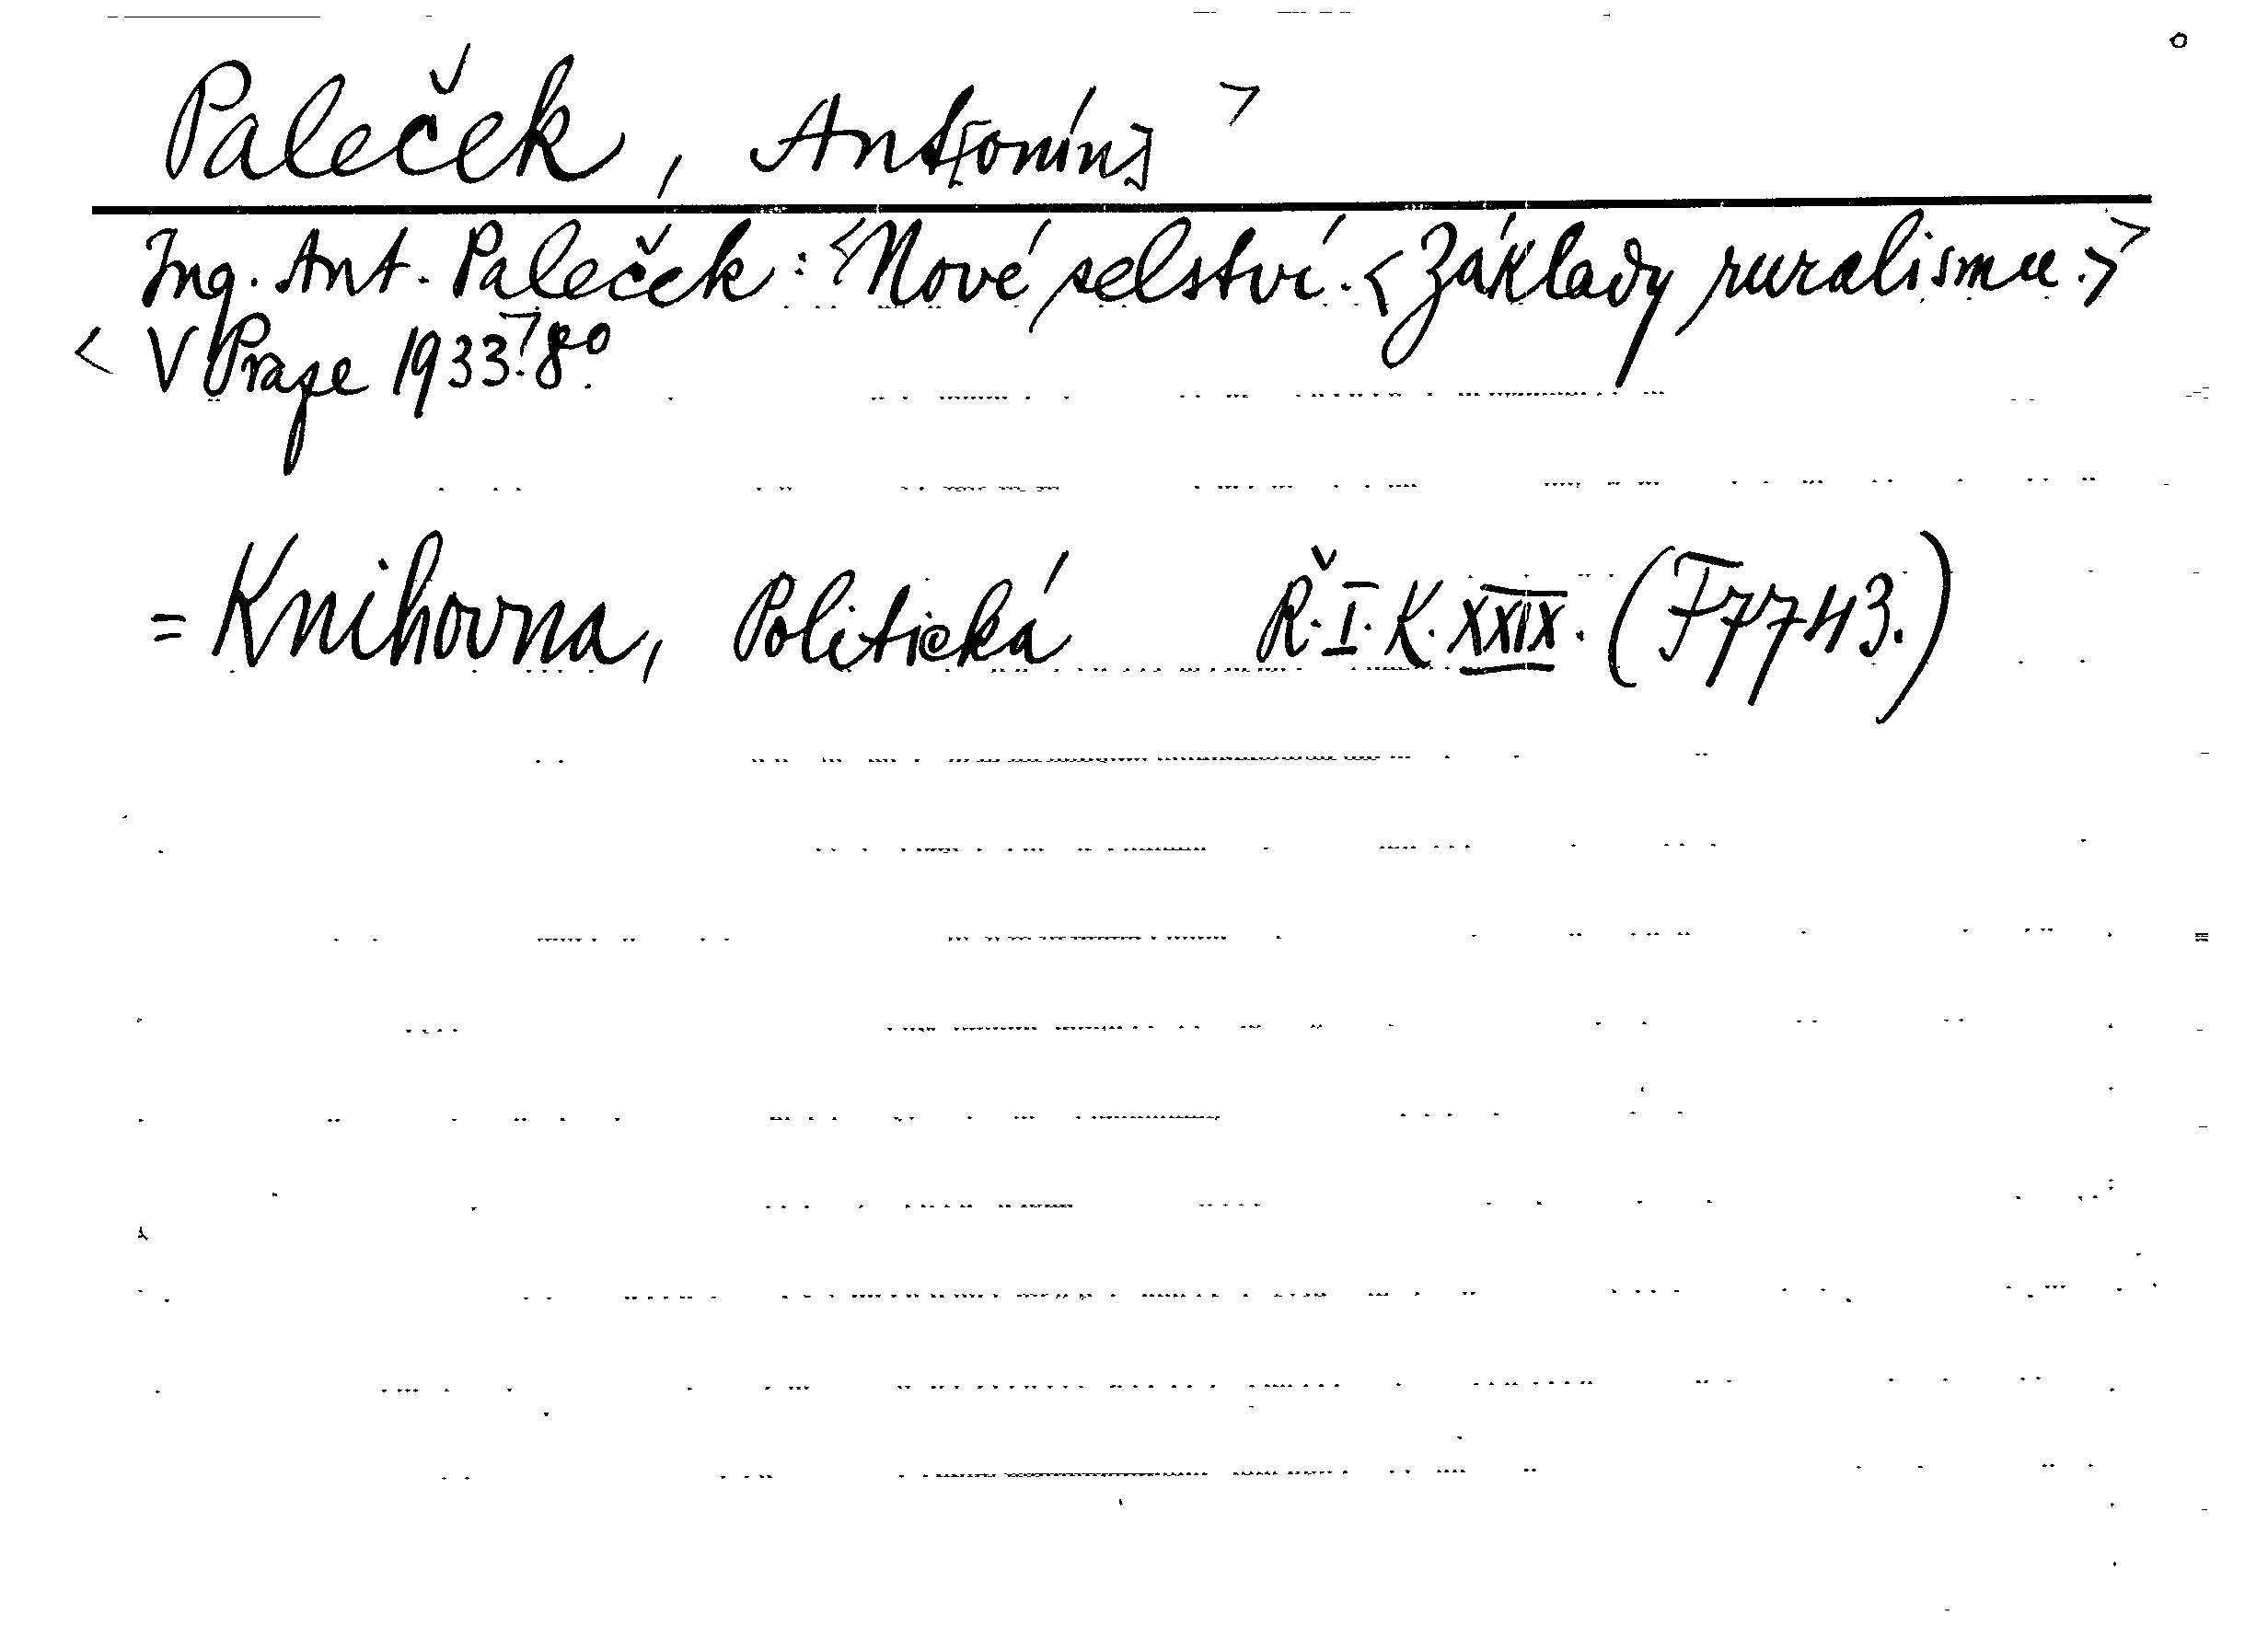 Paleček, Ant[onín]>
Ing. Ant. Paleček: <Nové selství. <Základy ruralismu.>>
<V Praze 1933.> 8°.
= Knihovna, Politická Ř. I. K. XXIX. (F7743.)